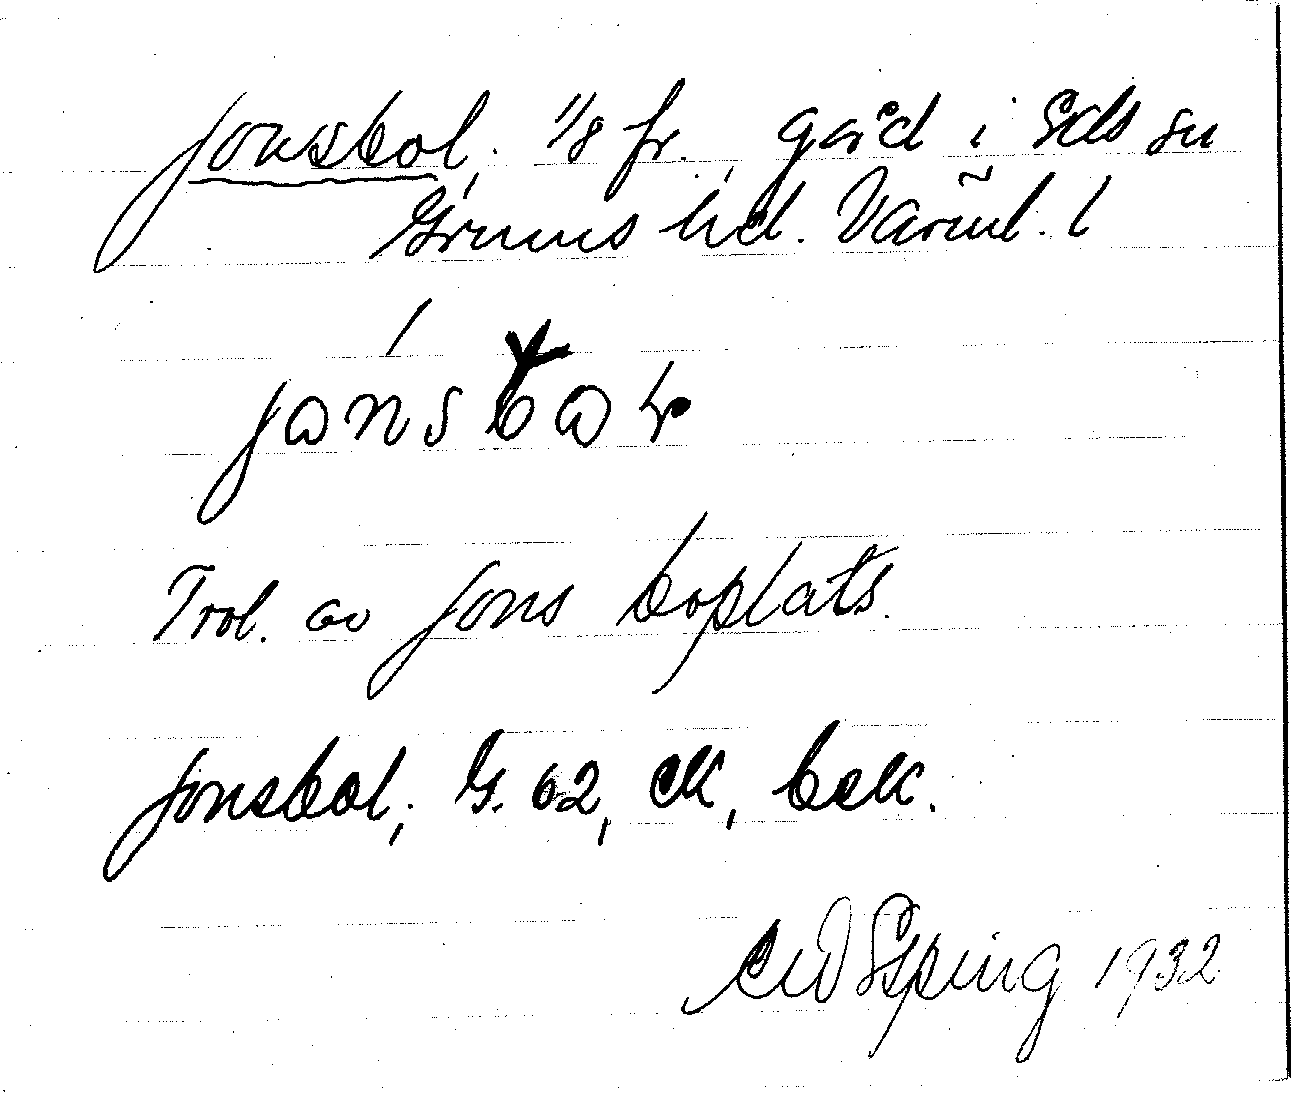 Jonsbol, 1/8 fr., gård i Eds sn
Grums hd. Värml. l
Trol. av Jons boplats.
Jonsbol, G. 62, ek, bek.
Esping 1932